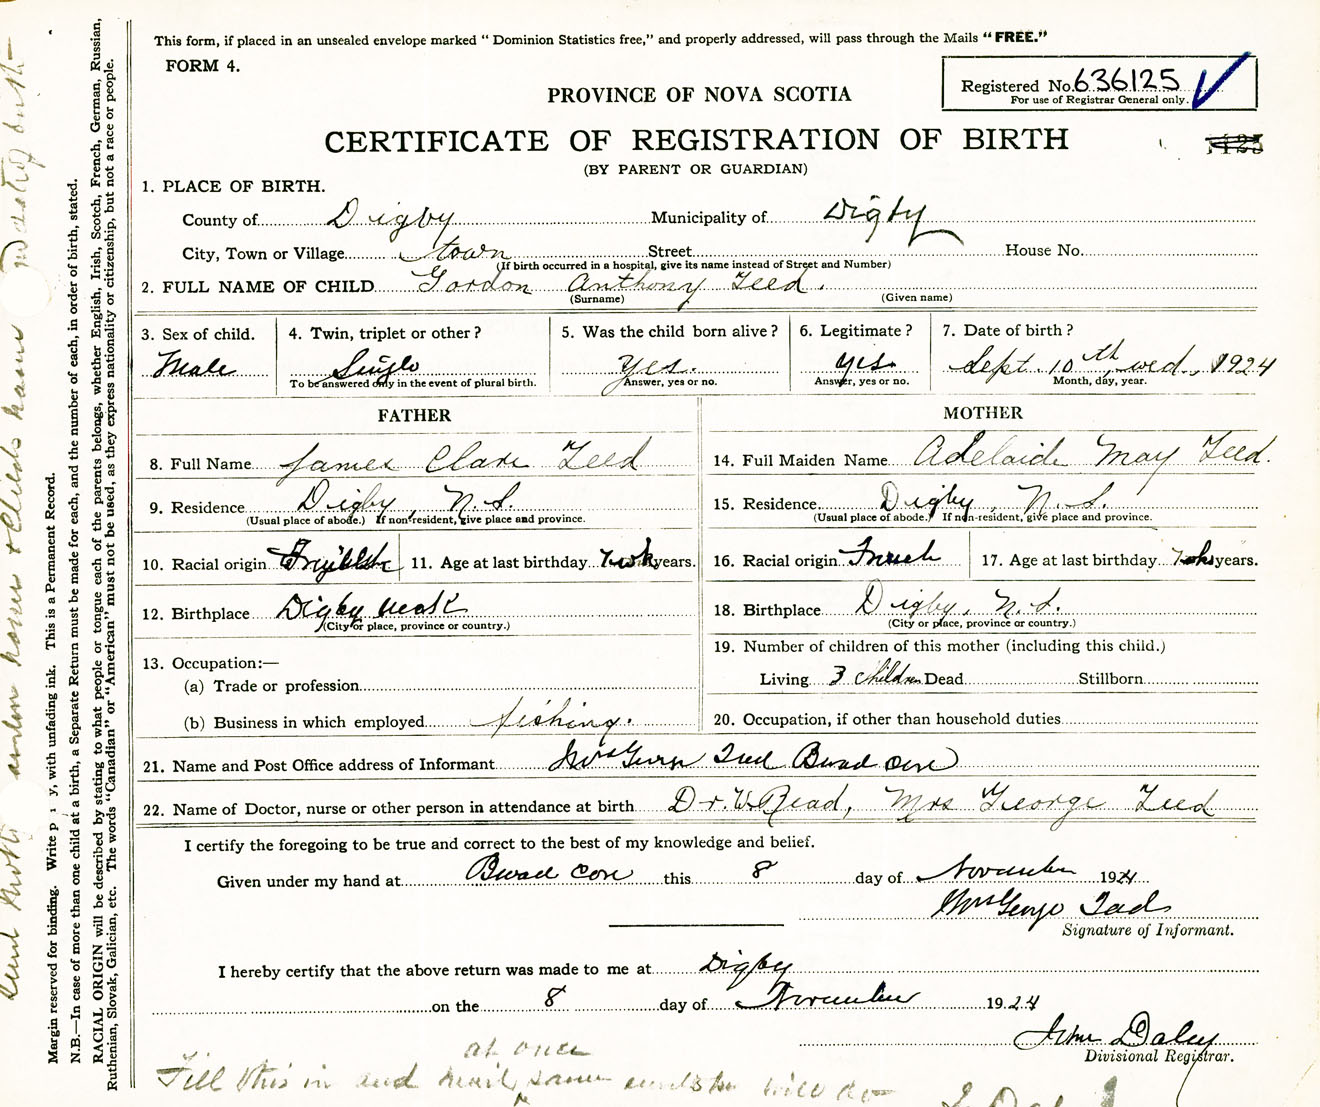 This form, if placed in an unsealed envelope marked " Dominion Statistics free," and properly addressed, will pass through the Mails "FREE."
FORM 4.
Registered No. 636125
For use of Registrar General only.
PROVINCE OF NOVA SCOTIA
CERTIFICATE OF REGISTRATION OF BIRTH
(BY PARENT OR GUARDIAN)
1. PLACE OF BIRTH.
County of Digby Municipality of Digby
City, Town or Village town Street House No.
(If birth occurred in a hospital, give its name instead of Street and Number)
2. FULL NAME OF CHILD Gordon Anthony Teed.
(Surname) (Given name)
3. Sex of child. 4. Twin, triplet or other? 5. Was the child born alive? 6. Legitimate? 7. Date of birth?
Male Single Yes. yes Sept. 10th, wed., 1924
To be answered only in the event of plural birth. Answer, yes or no. Answer, yes or no. Month, day, year.
FATHER MOTHER
8. Full Name James Clare Teed 14. Full Maiden Name Adelaide May Teed.
9. Residence Digby, N.S. 15. Residence Digby, N.S.
(Usual place of abode.) If non-resident, give place and province. (Usual place of abode.) If non-resident, give place and province.
10. Racial origin 11. Age at last birthday years. 16. Racial origin French 17. Age at last birthday years.
12. Birthplace Digby neck 18. Birthplace Digby, N.S.
(City or place, province or country.) (City or place, province or country.)
13. Occupation:— 19. Number of children of this mother (including this child.)
(a) Trade or profession Living 3 children Dead Stillborn
(b) Business in which employed fishing. 20. Occupation, if other than household duties
21. Name and Post Office address of Informant Mrs George Teed Broad Cove
22. Name of Doctor, nurse or other person in attendance at birth Dr. W. Read, Mrs George Teed
I certify the foregoing to be true and correct to the best of my knowledge and belief.
Given under my hand at Broad Cove this 8 day of November 1924
Mrs George Teed
Signature of Informant.
I hereby certify that the above return was made to me at Digby
on the 8 day of November 1924
John Daley
Divisional Registrar.
at once
Fill this in and mail same will do
Margin reserved for binding. Write p y, with unfading ink. This is a Permanent Record.
N.B.—In case of more than one child at a birth, a Separate Return must be made for each, and the number of each, in order of birth, stated.
RACIAL ORIGIN will be described by stating to what people or tongue each of the parents belongs, whether English, Irish, Scotch, French, German, Russian,
Ruthenian, Slovak, Galician, etc. The words "Canadian" or "American" must not be used, as they express nationality or citizenship, but not a race or people.